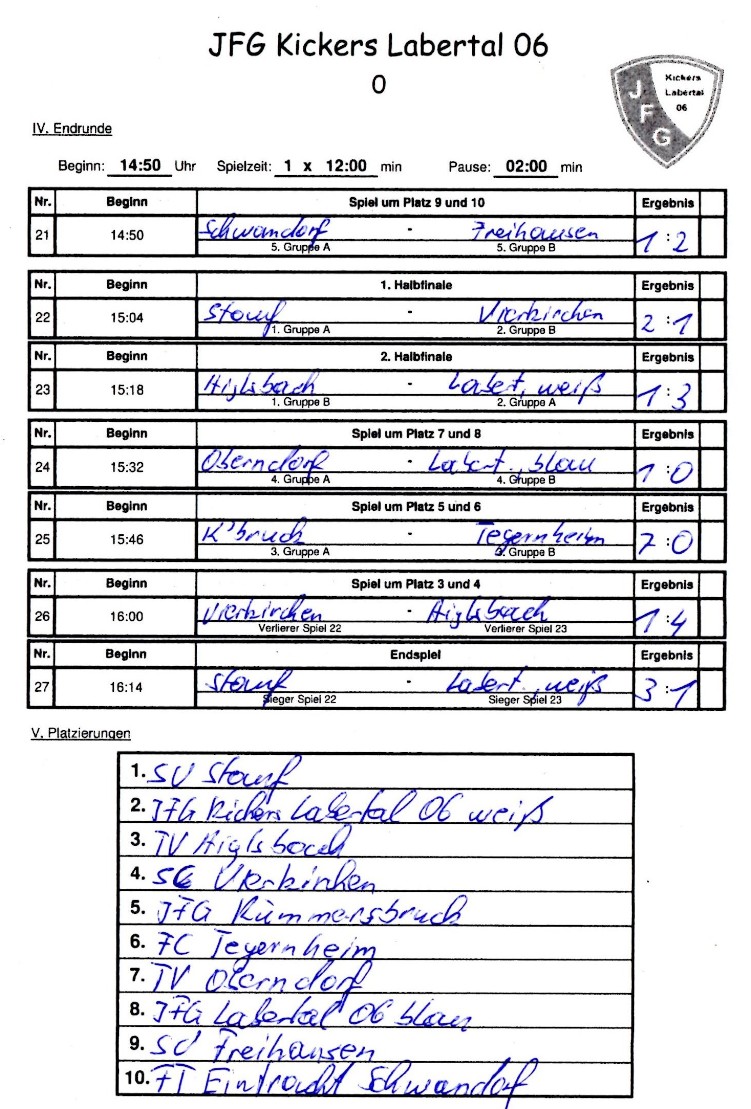 JFG Kickers Labertal 06
0
Kickers
Labertal
06
JFG
IV. Endrunde
Beginn: 14:50 Uhr Spielzeit: 1 x 12:00 min Pause: 02:00 min
Nr. Beginn Spiel um Platz 9 und 10 Ergebnis
21 14:50 Schwandorf - Freihausen 1:2
5. Gruppe A 5. Gruppe B
Nr. Beginn 1. Halbfinale Ergebnis
22 15:04 Stauf - Vierkirchen 2:1
1. Gruppe A 2. Gruppe B
Nr. Beginn 2. Halbfinale Ergebnis
23 15:18 Aiglsbach - Labert. weiß 1:3
1. Gruppe B 2. Gruppe A
Nr. Beginn Spiel um Platz 7 und 8 Ergebnis
24 15:32 Oberndorf - Labert., blau 1:0
4. Gruppe A 4. Gruppe B
Nr. Beginn Spiel um Platz 5 und 6 Ergebnis
25 15:46 K'bruck - Tegernheim 7:0
3. Gruppe A 3. Gruppe B
Nr. Beginn Spiel um Platz 3 und 4 Ergebnis
26 16:00 Vierkirchen - Aiglsbach 1:4
Verlierer Spiel 22 Verlierer Spiel 23
Nr. Beginn Endspiel Ergebnis
27 16:14 Stauf - Labert., weiß 3:1
Sieger Spiel 22 Sieger Spiel 23
V. Platzierungen
1. SV Stauf
2. JFG Kickers Labertal 06 weiß
3. TV Aiglsbach
4. SC Vierkirchen
5. JFG Kümmersbruck
6. FC Tegernheim
7. TV Oberndorf
8. JFG Labertal 06 blau
9. SV Freihausen
10. FT Eintracht Schwandorf